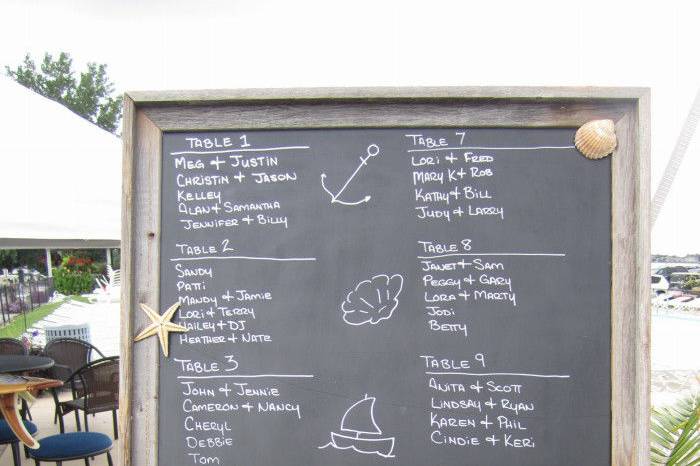 TABLE 1
MEG + JUSTIN
CHRISTIN + JASON
KELLEY
ALAN + SAMANTHA
JENNIFER + BILLY
TABLE 2
SANDY
PATTI
MANDY + JAMIE
LORI + TERRY
HAILEY + DJ
HEATHER + NATE
TABLE 3
JOHN + JENNIE
CAMERON + NANCY
CHERYL
DEBBIE
TOM
TABLE 7
LORI + FRED
MARY K + ROB
KATHY + BILL
JUDY + LARRY
TABLE 8
JANET + SAM
PEGGY + GARY
LORA + MARTY
JODI
BETTY
TABLE 9
ANITA + SCOTT
LINDSAY + RYAN
KAREN + PHIL
CINDIE + KERI